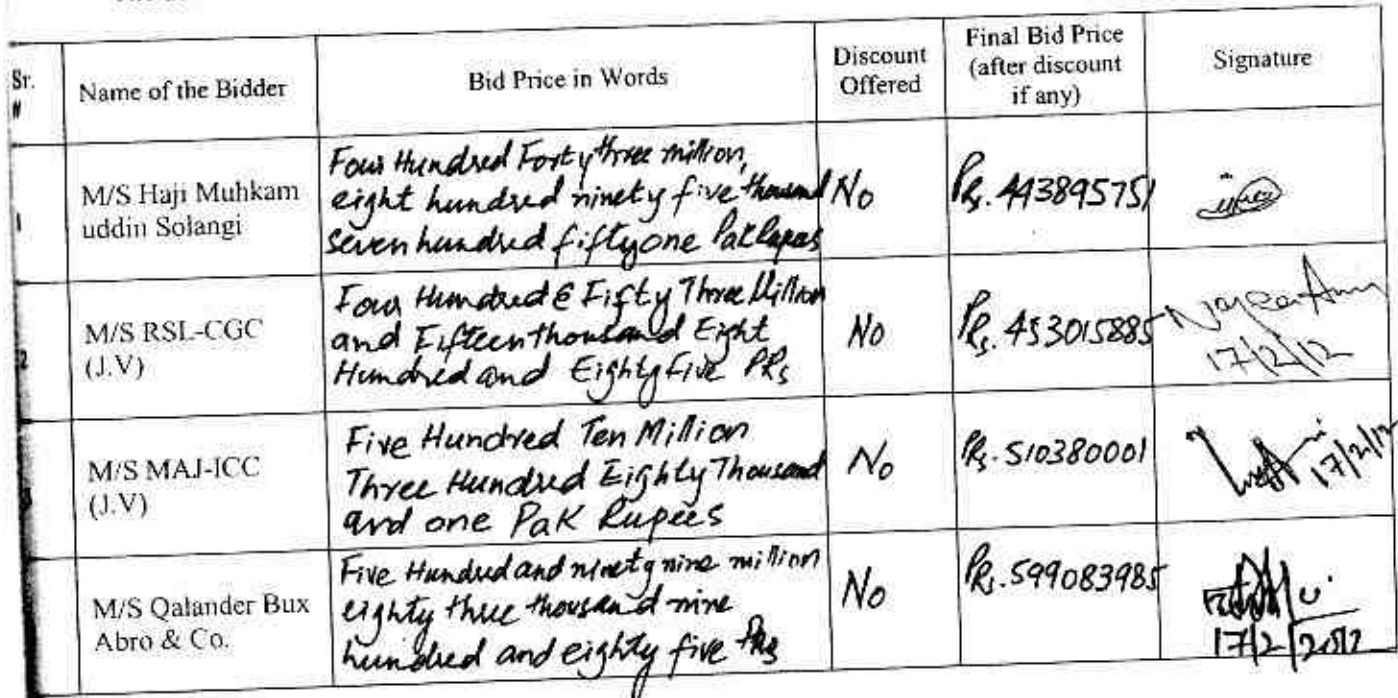 Sr. #
Name of the Bidder
Bid Price in Words
Discount Offered
Final Bid Price (after discount if any)
Signature
1
M/S Haji Muhkam
uddin Solangi
Four Hundred Forty three million,
eight hundred ninety five thousand
seven hundred fifty one Pak Rupees
No
PRs. 443895751
2
M/S RSL-CGC
(J.V)
Four Hundred & Fifty Three Million
and Fifteen thousand Eight
Hundred and Eighty five PRs
No
PRs. 453015885
17/2/12
M/S MAJ-ICC
(J.V)
Five Hundred Ten Million
Three Hundred Eighty Thousand
and one Pak Rupees
No
PRs. 510380001
17/2/12
M/S Qalander Bux
Abro & Co.
Five Hundred and ninety nine million
eighty three thousand nine
hundred and eighty five PRs
No
PRs. 599083985
17/2/2012